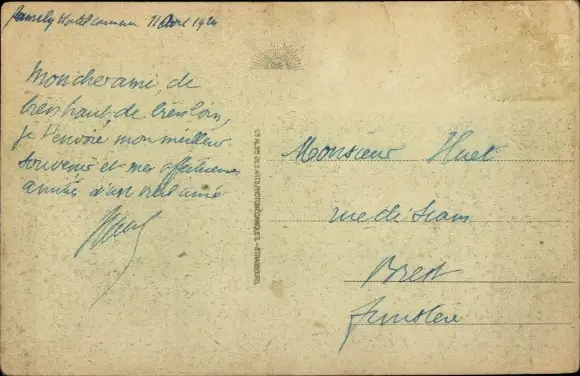 Family Hotel 11 Avril 1924
Mon cher ami, de
très haut, de très loin,
je t'envoie mon meilleur
souvenir et mes affectueuses
amitiés d'un vieil ami
Monsieur Huet
rue de Siam
Brest
Finistère
ALPINA DES ARTS PHOTOMÉCANIQUES. - STRASBOURG.